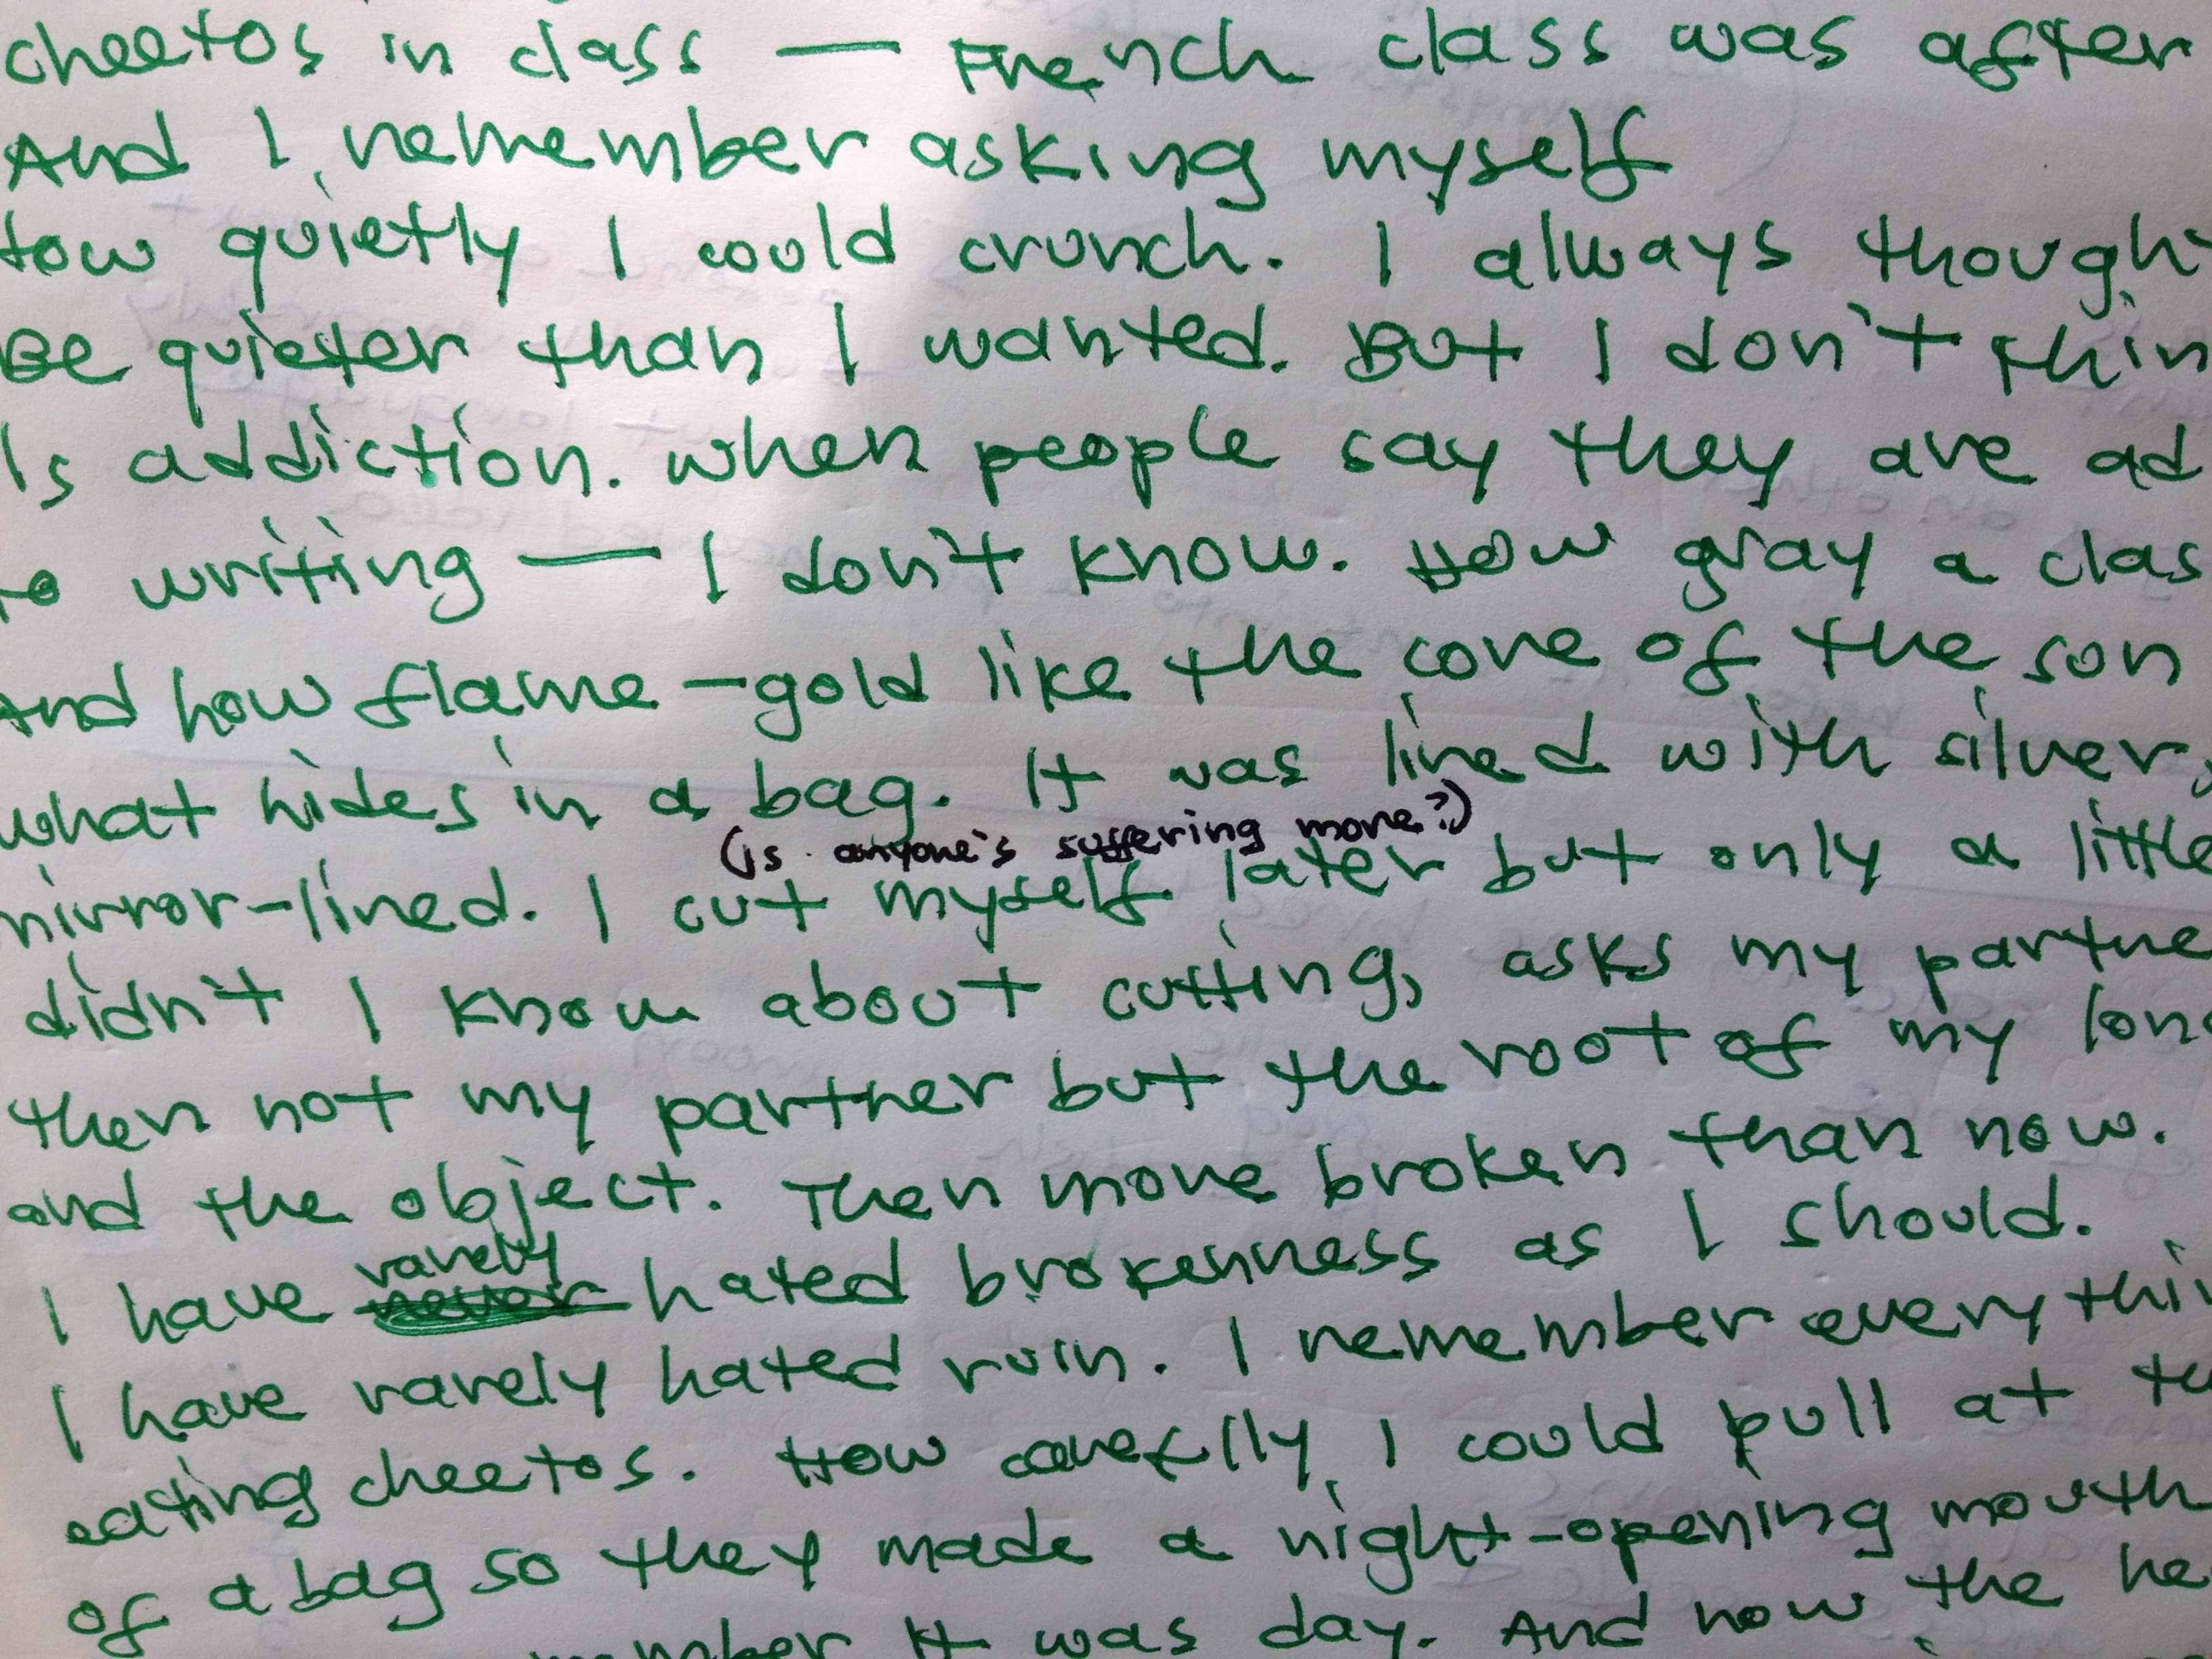 cheetos in class — French class was after
And I remember asking myself
how quietly I could crunch. I always though
Be quieter than I wanted. But I don't thin
Is addiction. When people say they are ad
to writing — I don't know. How gray a clas
And how flame-gold like the core of the son
what hides in a bag. It was lined with silver,
(is anyone's suffering more?)
mirror-lined. I cut myself later but only a little
didn't I know about cutting, asks my partne
then not my partner but the root of my lon
and the object. Then more broken than now.
rarely
I have never hated brokenness as I should.
I have rarely hated ruin. I remember everythin
eating cheetos. How carefully I could pull at
of a bag so they made a night-opening mouth
It was day. And now the he